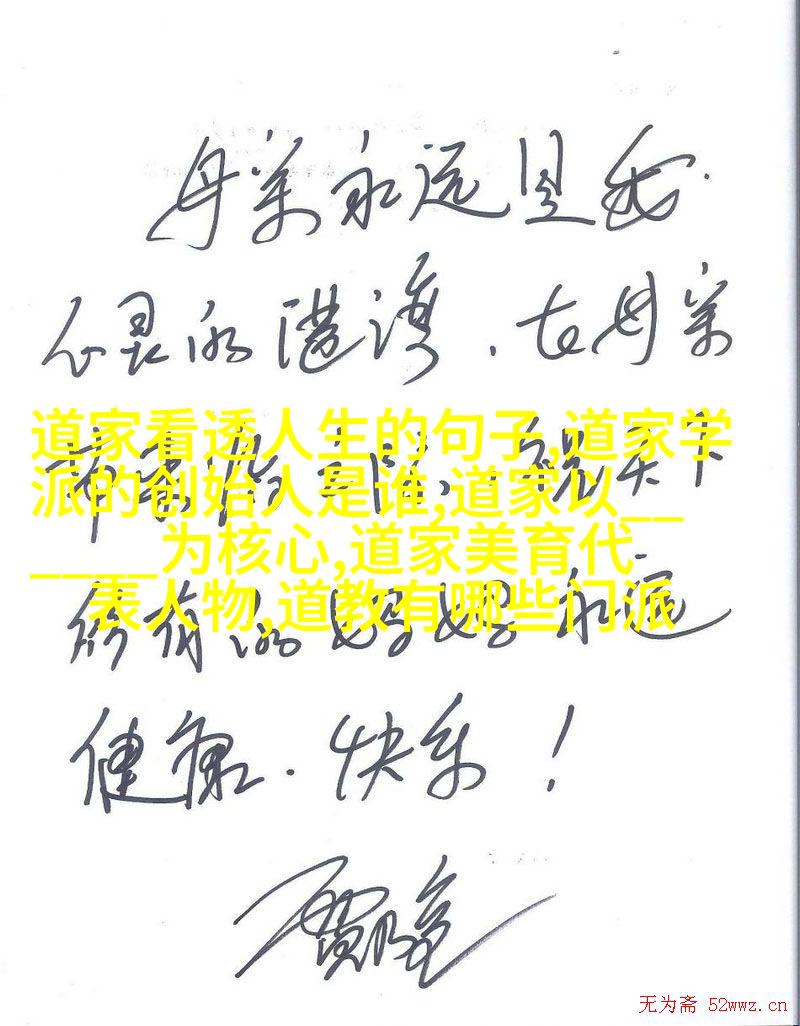 母亲永远是我
心灵的港湾,在母亲
节来临之际,祝天下
所有的妈妈永远
健康、快乐!
道家看透人生的句子,道家学
派的创始人是谁,道家以__
______为核心,道家美育代
表人物,道教有哪些门派
无为斋 52wwz.cn